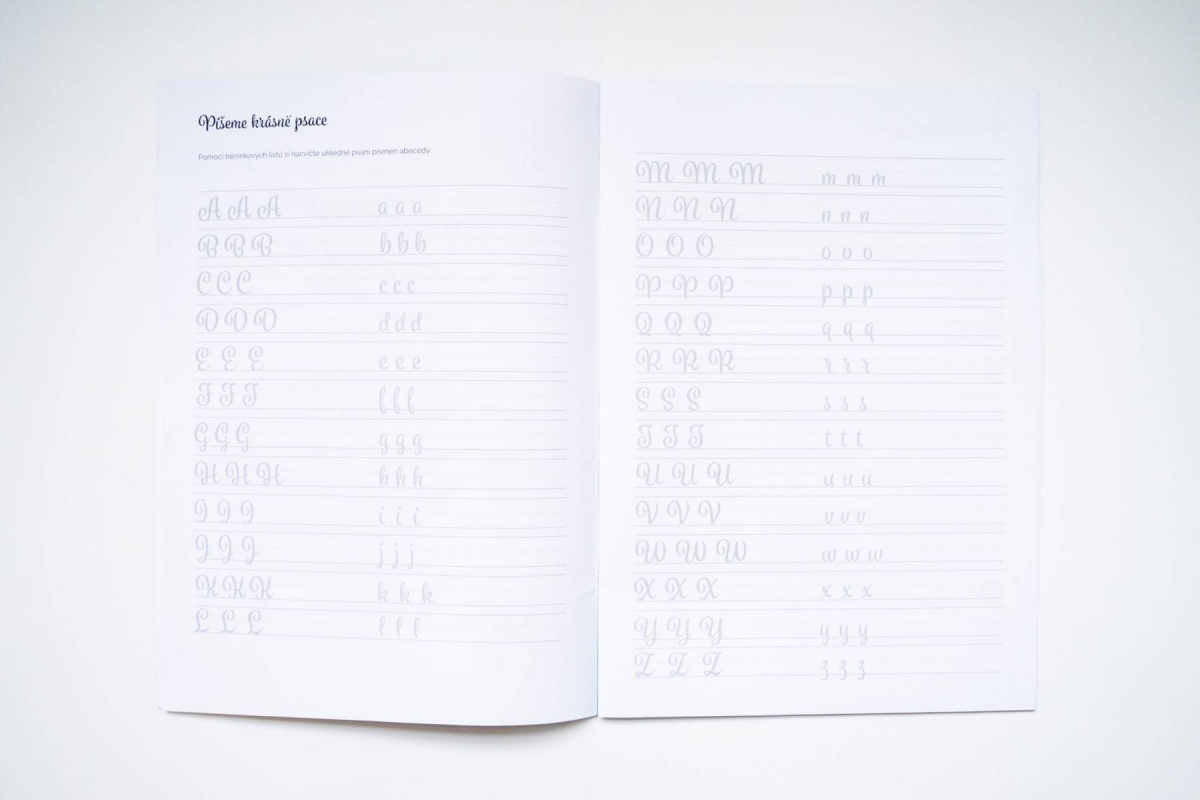 Píšeme krásně psace
Pomocí tréninkových listů si nacvičte úhledné psaní písmen abecedy.
A A A a a a
B B B b b b
C C C c c c
D D D d d d
E E E e e e
F F F f f f
G G G g g g
H H H h h h
I I I i i i
J J J j j j
K K K k k k
L L L l l l
M M M m m m
N N N n n n
O O O o o o
P P P p p p
Q Q Q q q q
R R R r r r
S S S s s s
T T T t t t
U U U u u u
V V V v v v
W W W w w w
X X X x x x
Y Y Y y y y
Z Z Z z z z